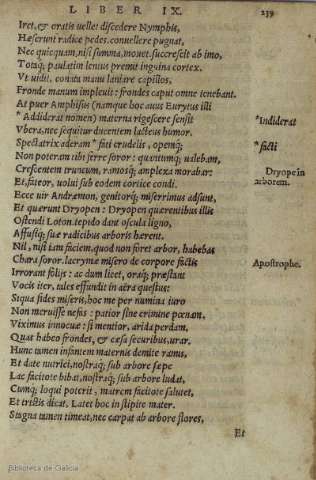 LIBER IX.
239
Iret, & gratis uellet discedere Nymphis,
Hæserunt radice pedes. conuellere pugnat,
Nec quicquam, nisi summa, mouet. succrescit ab imo,
Totaq; paulatim lentus premit inguina cortex.
Vt uidit, conata manu laniare capillos,
Fronde manum impleuit: frondes caput omne tenebant.
At puer Amphisus (namque hoc auus Eurytus illi
* Addiderat nomen) materna rigescere sensit
*Indiderat
Vbera, nec sequitur ducentem lacteus humor.
Spectatrix aderam * fati crudelis, opemq;
*facti
Non poteram tibi ferre soror: quantumq; ualebam,
Crescentem truncum, ramosq; amplexa morabar:
Dryope in
Et, fateor, uolui sub eodem cortice condi.
arborem.
Ecce uir Andræmon, genitorq; miserrimus adsunt,
Et quærunt Dryopen: Dryopen quærentibus illis
Ostendi Loton. tepido dant oscula ligno,
Affusiq; suæ radicibus arboris hærent.
Nil, nisi iam faciem, quod non foret arbor, habebat
Chara soror. lacrymæ misero de corpore factis
Apostrophe.
Irrorant folijs: ac dum licet, oraq; præstant
Vocis iter, tales effundit in aëra questus:
Siqua fides miseris, hoc me per numina iuro
Non meruisse nefas: patior sine crimine pœnam,
Viximus innocuæ: si mentior, arida perdam,
Quas habeo frondes, & cæsa securibus, urar.
Hunc tamen infantem maternis demite ramis,
Et date nutrici, nostraq; sub arbore sæpe
Lac facitote bibat, nostraq; sub arbore ludat,
Cumq; loqui poterit, matrem facitote salutet,
Et tristis dicat, Latet hoc in stipite mater.
Stagna tamen timeat, nec carpat ab arbore flores,
Et
Biblioteca de Galicia